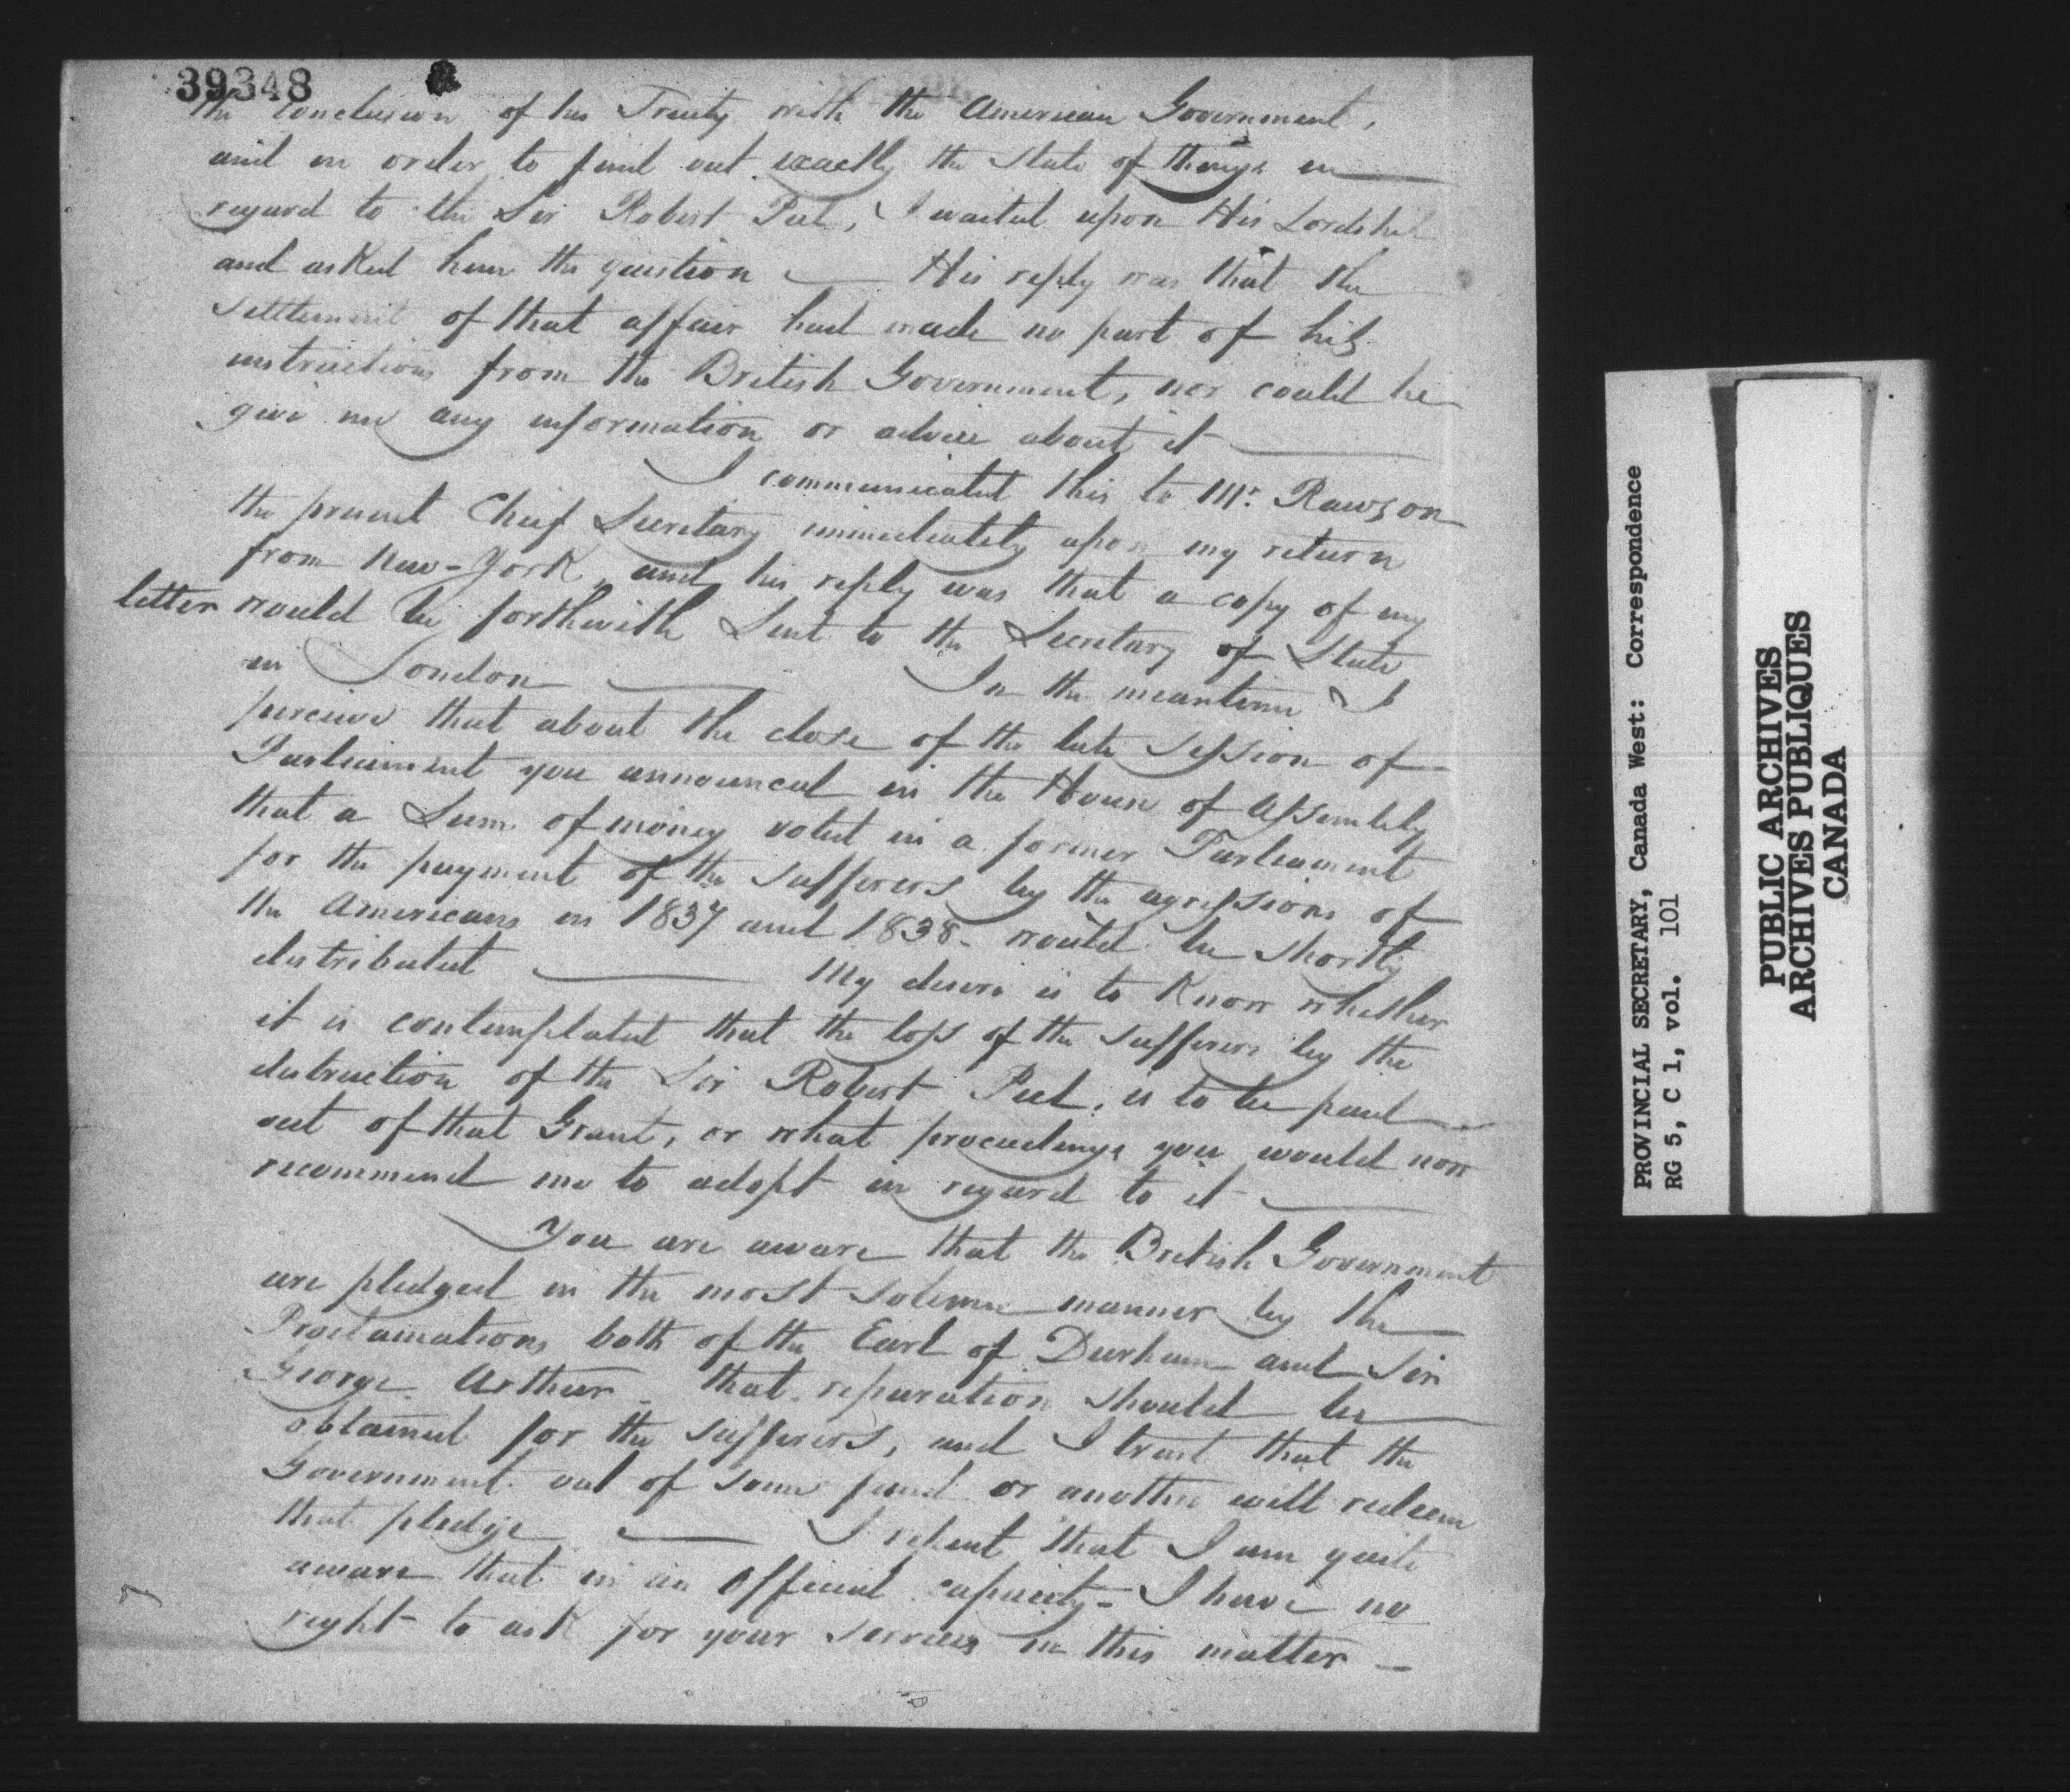 39348
the conclusion of his Treaty with the American Government,
and in order to find out exactly the State of things in
regard to the Sir Robert Peel, I waited upon His Lordship
and asked him the question — His reply was that the
settlement of that affair had made no part of his
instructions from the British Government, nor could he
give me any information or advice about it —
I communicated this to Mr. Rawson
the present Chief Secretary immediately upon my return
from New-York, and his reply was that a copy of my
letter would be forthwith Sent to the Secretary of State
in London — In the meantime I
perceive that about the close of the late Session of
Parliament you announced in the House of Assembly
that a Sum of money voted in a former Parliament
for the payment of the sufferers by the agressions of
the Americans in 1837 and 1838 - would be shortly
distributed — My desire is to Know whether
it is contemplated that the loss of the sufferers by the
destruction of the Sir Robert Peel, is to be paid
out of that Grant, or what proceedings you would now
recommend me to adopt in regard to it —
You are aware that the British Government
are pledged in the most solemn manner by the
Proclamations both of the Earl of Durham and Sir
George Arthur - that reparation should be
obtained for the sufferers, and I trust that the
Government out of some fund or another will redeem
that pledge — I repeat that I am quite
aware that in an official capacity - I have no
right to ask for your services in this matter —
PROVINCIAL SECRETARY, Canada West: Correspondence
RG 5, C 1, vol. 101
PUBLIC ARCHIVES
ARCHIVES PUBLIQUES
CANADA